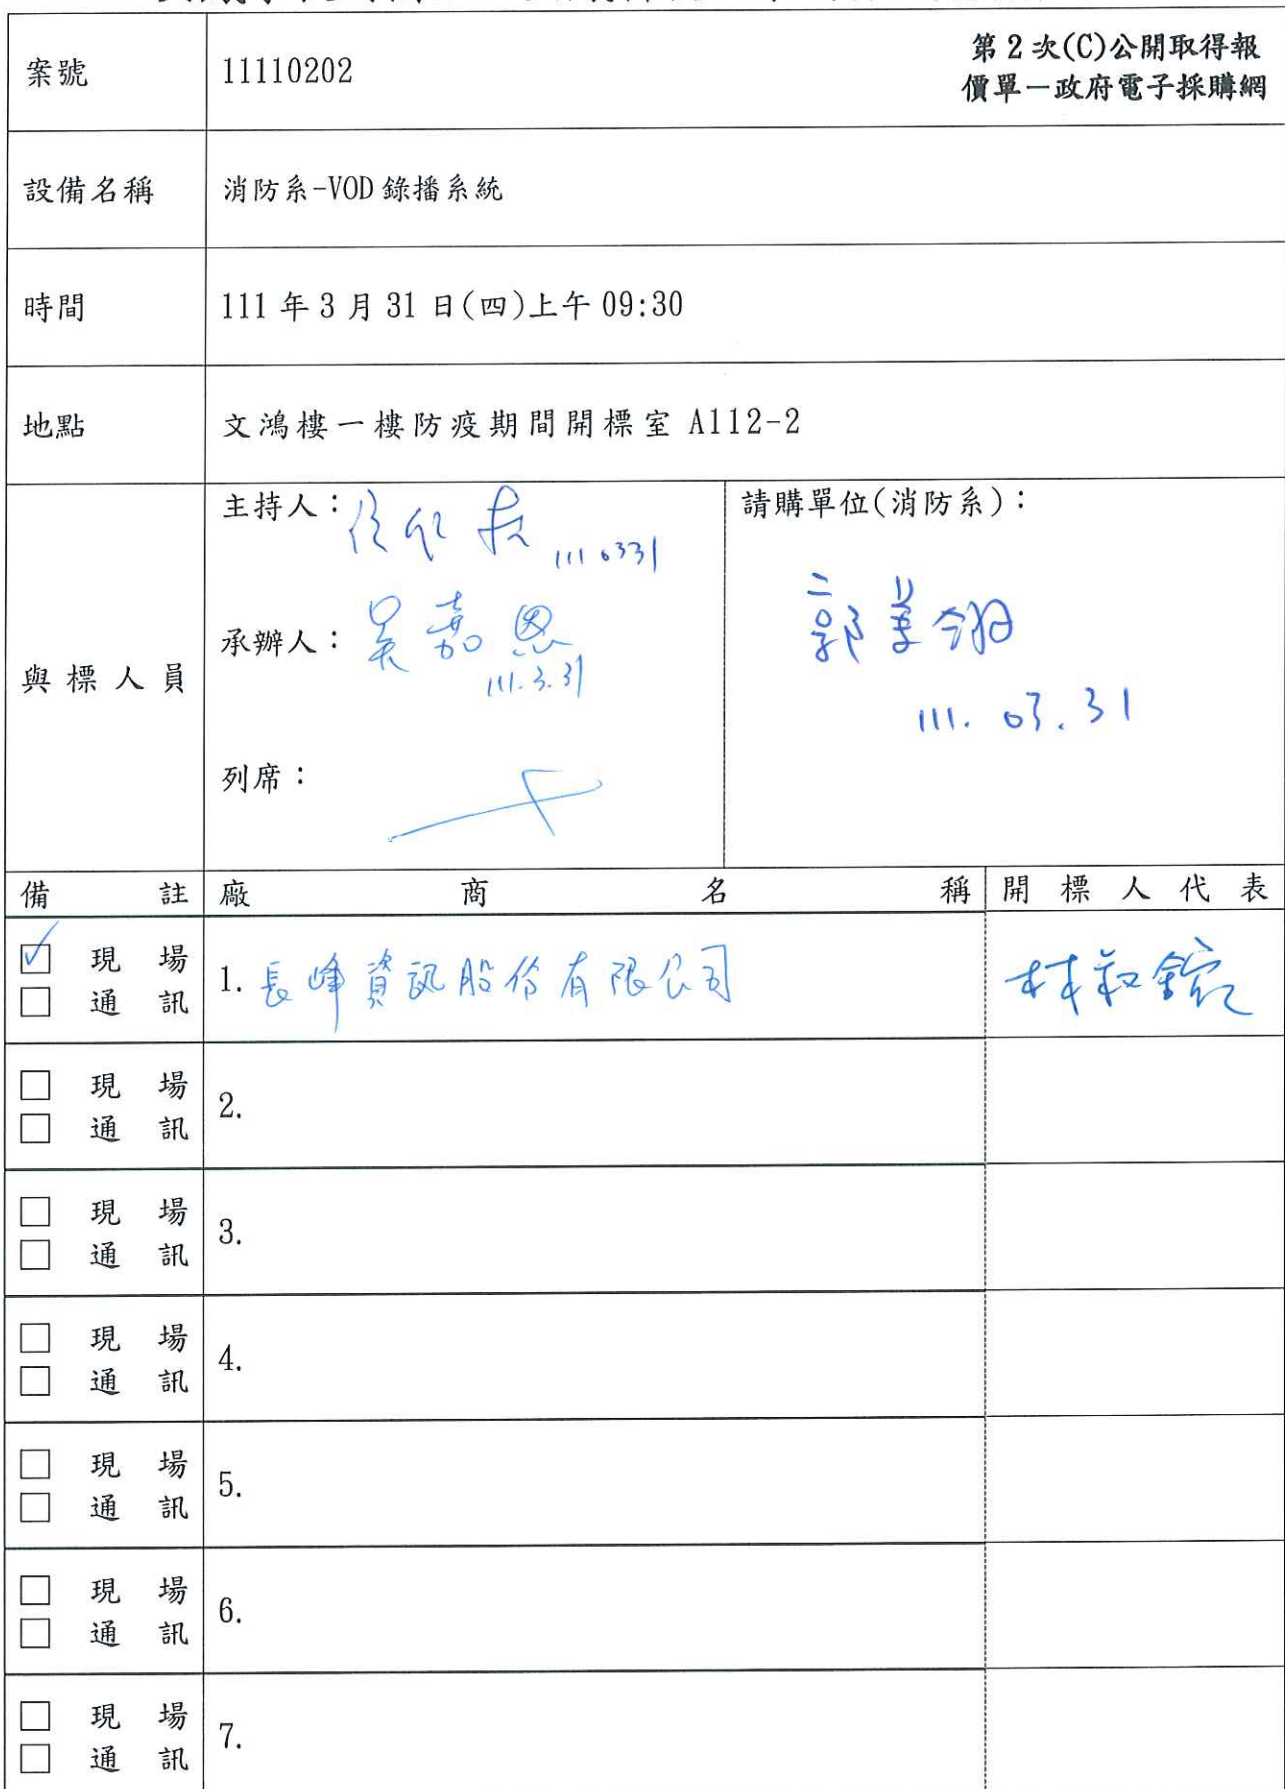 案號 11110202 第2次(C)公開取得報
價單－政府電子採購網
設備名稱 消防系-VOD錄播系統
時間 111年3月31日(四)上午09:30
地點 文鴻樓一樓防疫期間開標室 A112-2
與標人員
主持人：
1110331
承辦人：吳嘉恩
111.3.31
列席：
請購單位(消防系)：
郭
111.03.31
備註 廠商名稱 開標人代表
☑ 現場
□ 通訊
1. 長峰資訊股份有限公司
林
□ 現場
□ 通訊
2.
□ 現場
□ 通訊
3.
□ 現場
□ 通訊
4.
□ 現場
□ 通訊
5.
□ 現場
□ 通訊
6.
□ 現場
□ 通訊
7.